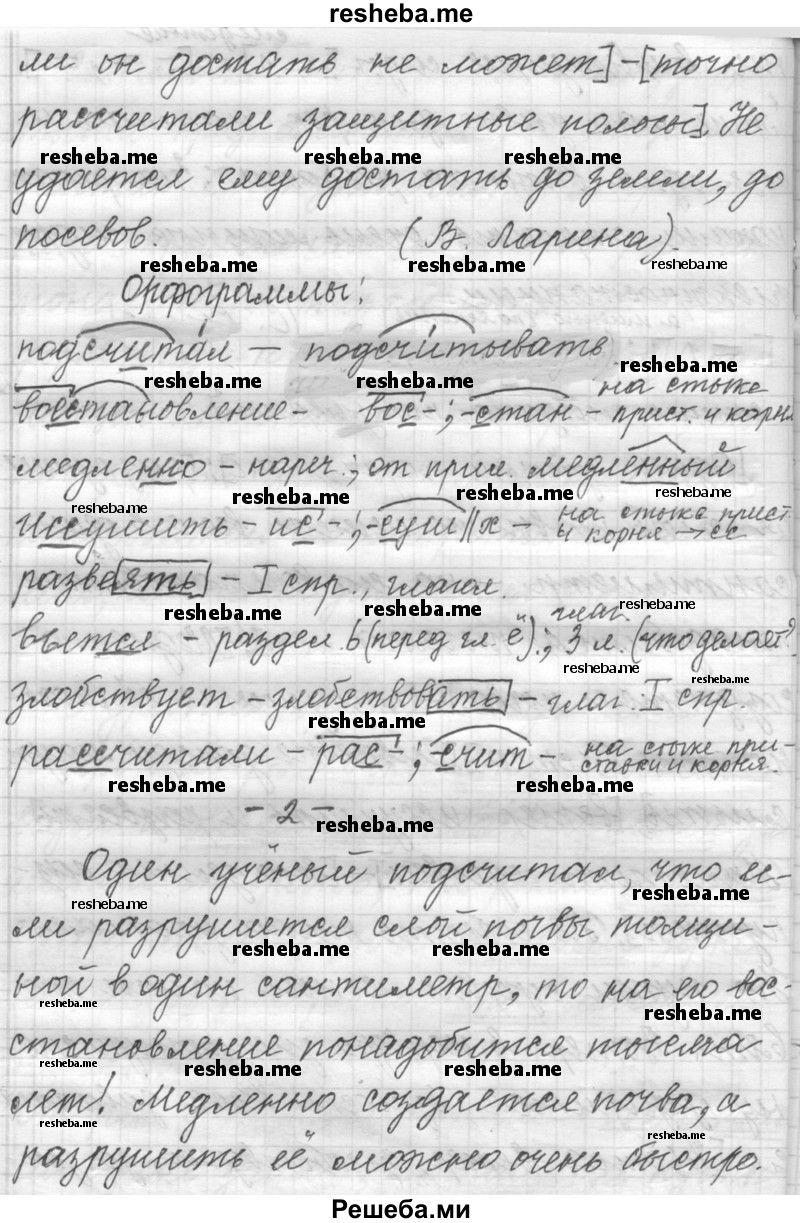 resheba.me
ли он достать не может] – [точно
рассчитали защитные полосы]. Не
resheba.me resheba.me resheba.me
удается ему достать до земли, до
посевов. (В. Ларина).
resheba.me resheba.me resheba.me
Орфограммы:
подсчитал – подсчитывать
resheba.me
resheba.me resheba.me
восстановление – вос-; -стан – на стыке прист. и корня
медленно – нареч.; от прил. медленный
resheba.me resheba.me resheba.me
иссушить – ис-; -суш||х – на стыке прист. и корня → сс
развеять – I спр., глагол.
resheba.me resheba.me resheba.me
вьется – раздел. ь (перед гл. ё); глаг. 3 л. (что делает?)
resheba.me
resheba.me
злобствует – злобствовать – глаг. I спр.
resheba.me
рассчитали – рас-; -счит – на стыке приставки и корня.
resheba.me resheba.me
– 2 –
resheba.me
Один учёный подсчитал, что ес-
resheba.me resheba.me
ли разрушится слой почвы толщи-
resheba.me resheba.me
ной в один сантиметр, то на его вос-
resheba.me resheba.me
становление понадобится тысяча
resheba.me resheba.me resheba.me
лет! Медленно создается почва, а
resheba.me resheba.me
разрушить её можно очень быстро.
Решеба.ми